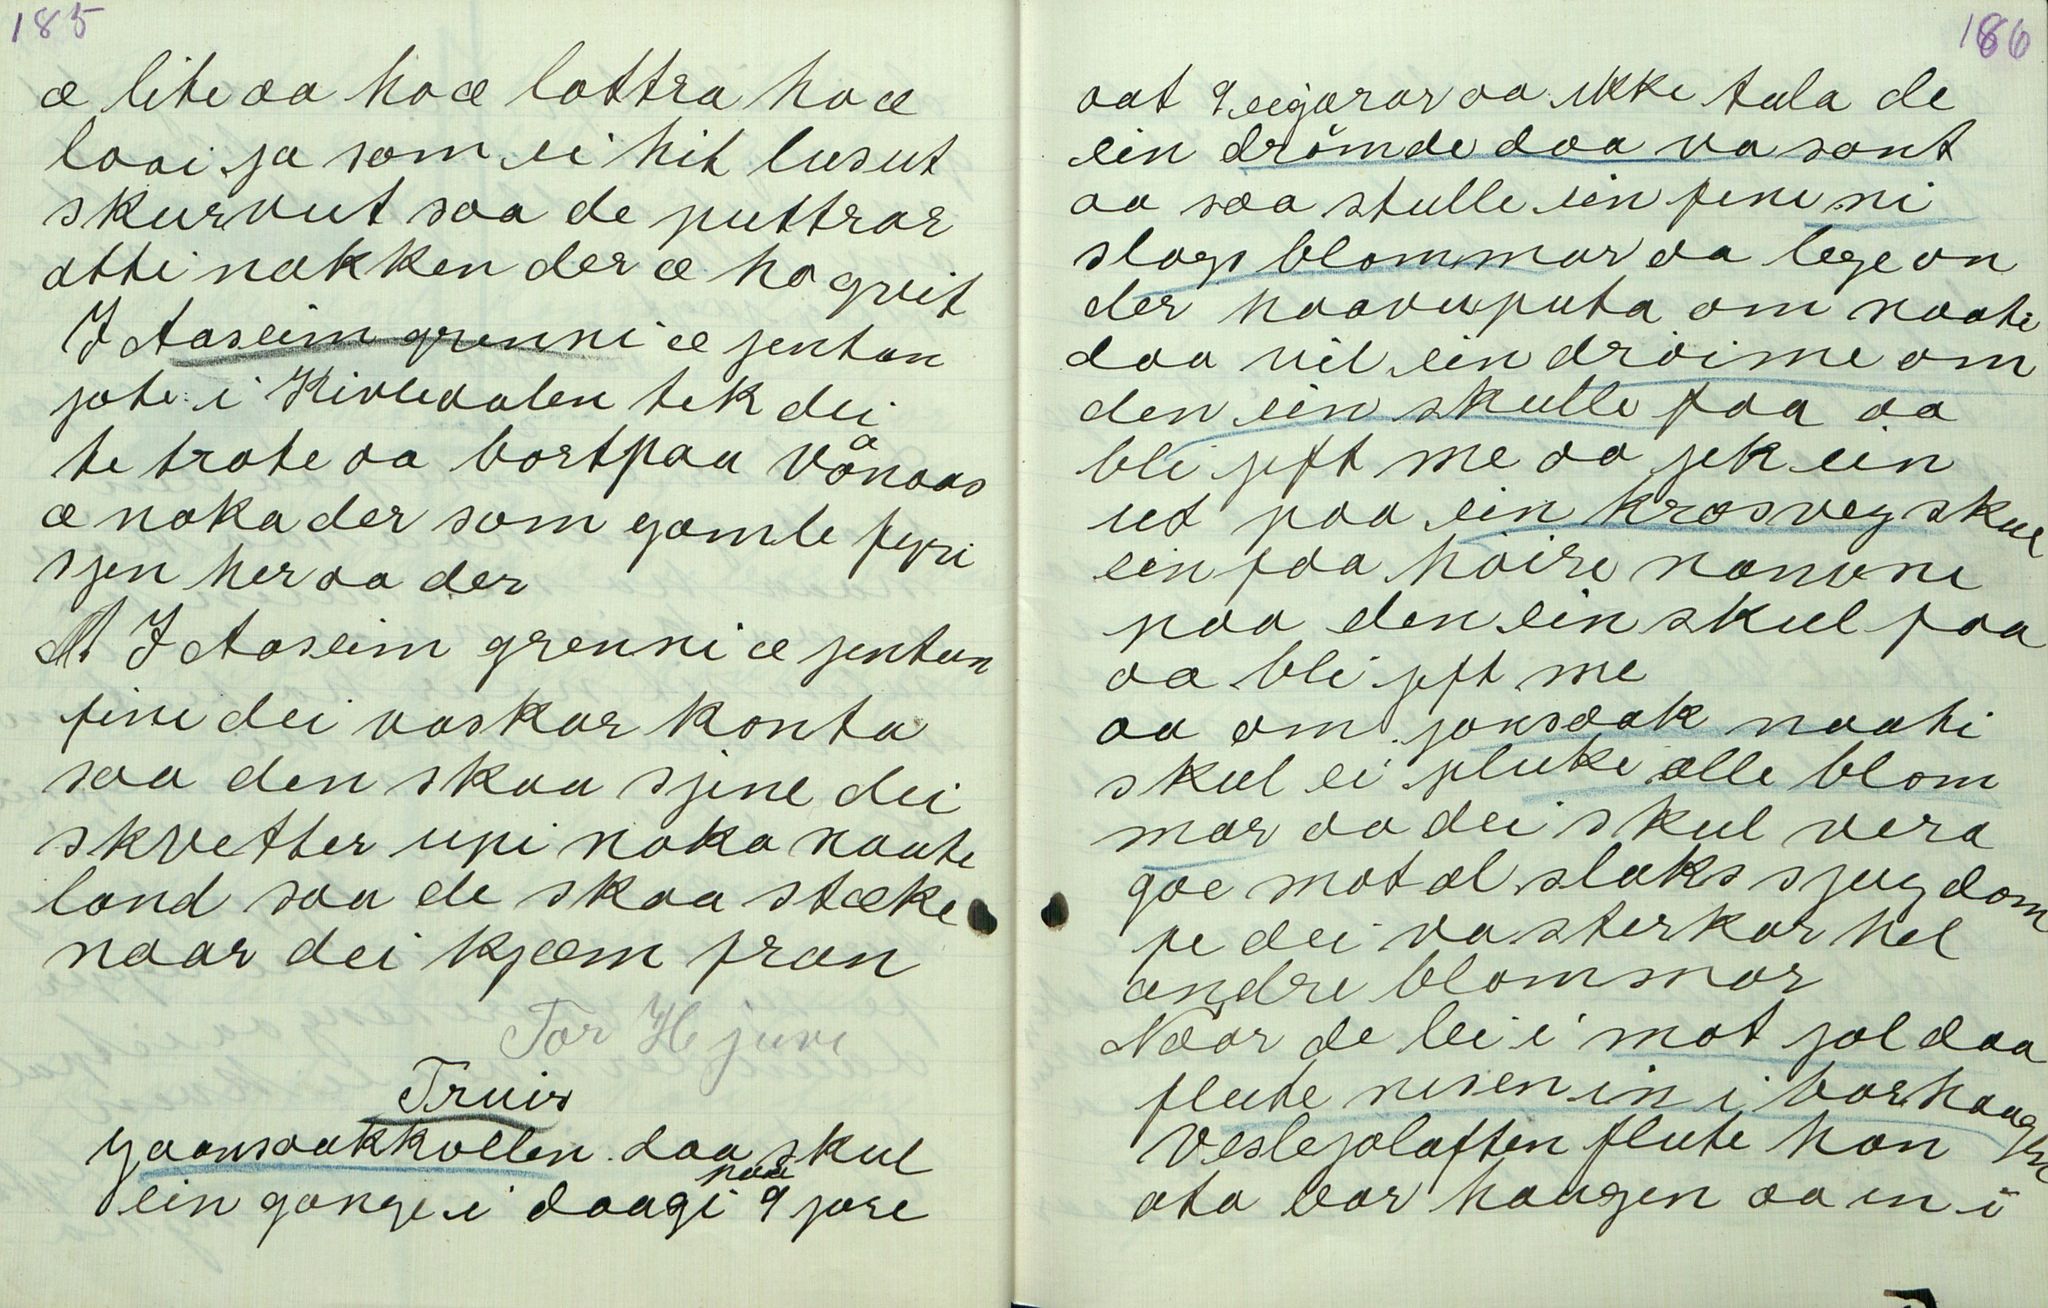 185
æ lite aa ho æ lottra ho æ
looi ja som ei hit lusut
skurvut saa de puttrar
atti nakken der æ ho gveit
I Aaseim grenni æ jentan
jote i Kivledalen tek dei
te trate aa bortpaa Vånaas
æ noka der som gamle fyri
sjen her aa der
I Aaseim grenni æ jentun
fine dei vaskar konta
saa den skaa sjine dei
skvetter upi noka naate
land saa de skaa stæke
naar dei kjæm fran
Tor Hjuvi
Truir
Jaansaakkvellen daa skul
ein gange i daagi paa 9 jore
186
aat 9 eigarar aa ikke tala de
ein drömde daa va sant
aa saa skulle ein fine ni
slags blommar aa lege on
der haavuputa om naate
daa vil ein dröime om
den ein skulle faa aa
bli jift me aa jek ein
ut paa ein krosveg skul
ein faa höire nanvne
paa den ein skul faa
aa bli jift me
aa om jonsoak naati
skul ei plukke alle blom
mar aa dei skul vera
goe mot al slaks sjug dom
fe dei va sterkar hel
andre blommar
Naar de lei i mot jol daa
flute nisen in i bor haagen
Veslejolaften flute han
ata bor haagen aa in i